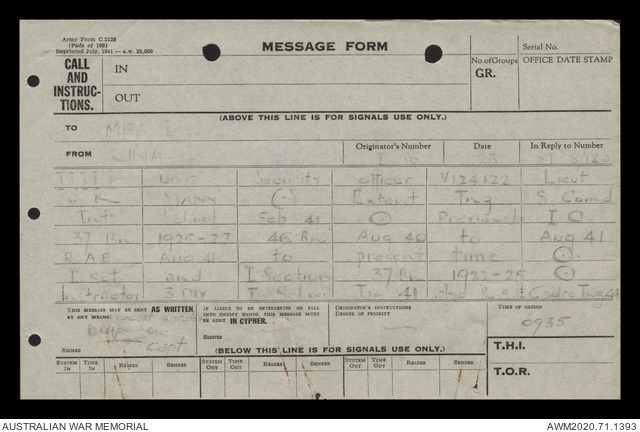 Army Form C.2128
(Pads of 100)
Reprinted July, 1941—s.w. 25,000
MESSAGE FORM
Serial No.
CALL AND INSTRUCTIONS.
IN
OUT
No. of Groups
GR.
OFFICE DATE STAMP
(ABOVE THIS LINE IS FOR SIGNALS USE ONLY.)
TO
FROM
Originator's Number
Date
In Reply to Number
Security officer V124122 Lieut
MANN Extent Trg S Comd
Int School Feb 41 Previously I O
37 Bn 1925-27 46 Bn Aug 40 to Aug 41
R A E Aug 41 to present time
I sgt and I Section 37 Bn 1922-25
Instructor I School also R A E Cadre
THIS MESSAGE MAY BE SENT AS WRITTEN BY ANY MEANS.
Capt
SIGNED
IF LIABLE TO BE INTERCEPTED OR FALL INTO ENEMY HANDS, THIS MESSAGE MUST BE SENT IN CYPHER.
SIGNED
ORIGINATOR'S INSTRUCTIONS
DEGREE OF PRIORITY
TIME OF ORIGIN
0935
T.H.I.
T.O.R.
(BELOW THIS LINE IS FOR SIGNALS USE ONLY.)
SYSTEM IN TIME IN READER SENDER SYSTEM OUT TIME OUT READER SENDER SYSTEM OUT TIME OUT READER SENDER
AUSTRALIAN WAR MEMORIAL
AWM2020.71.1393